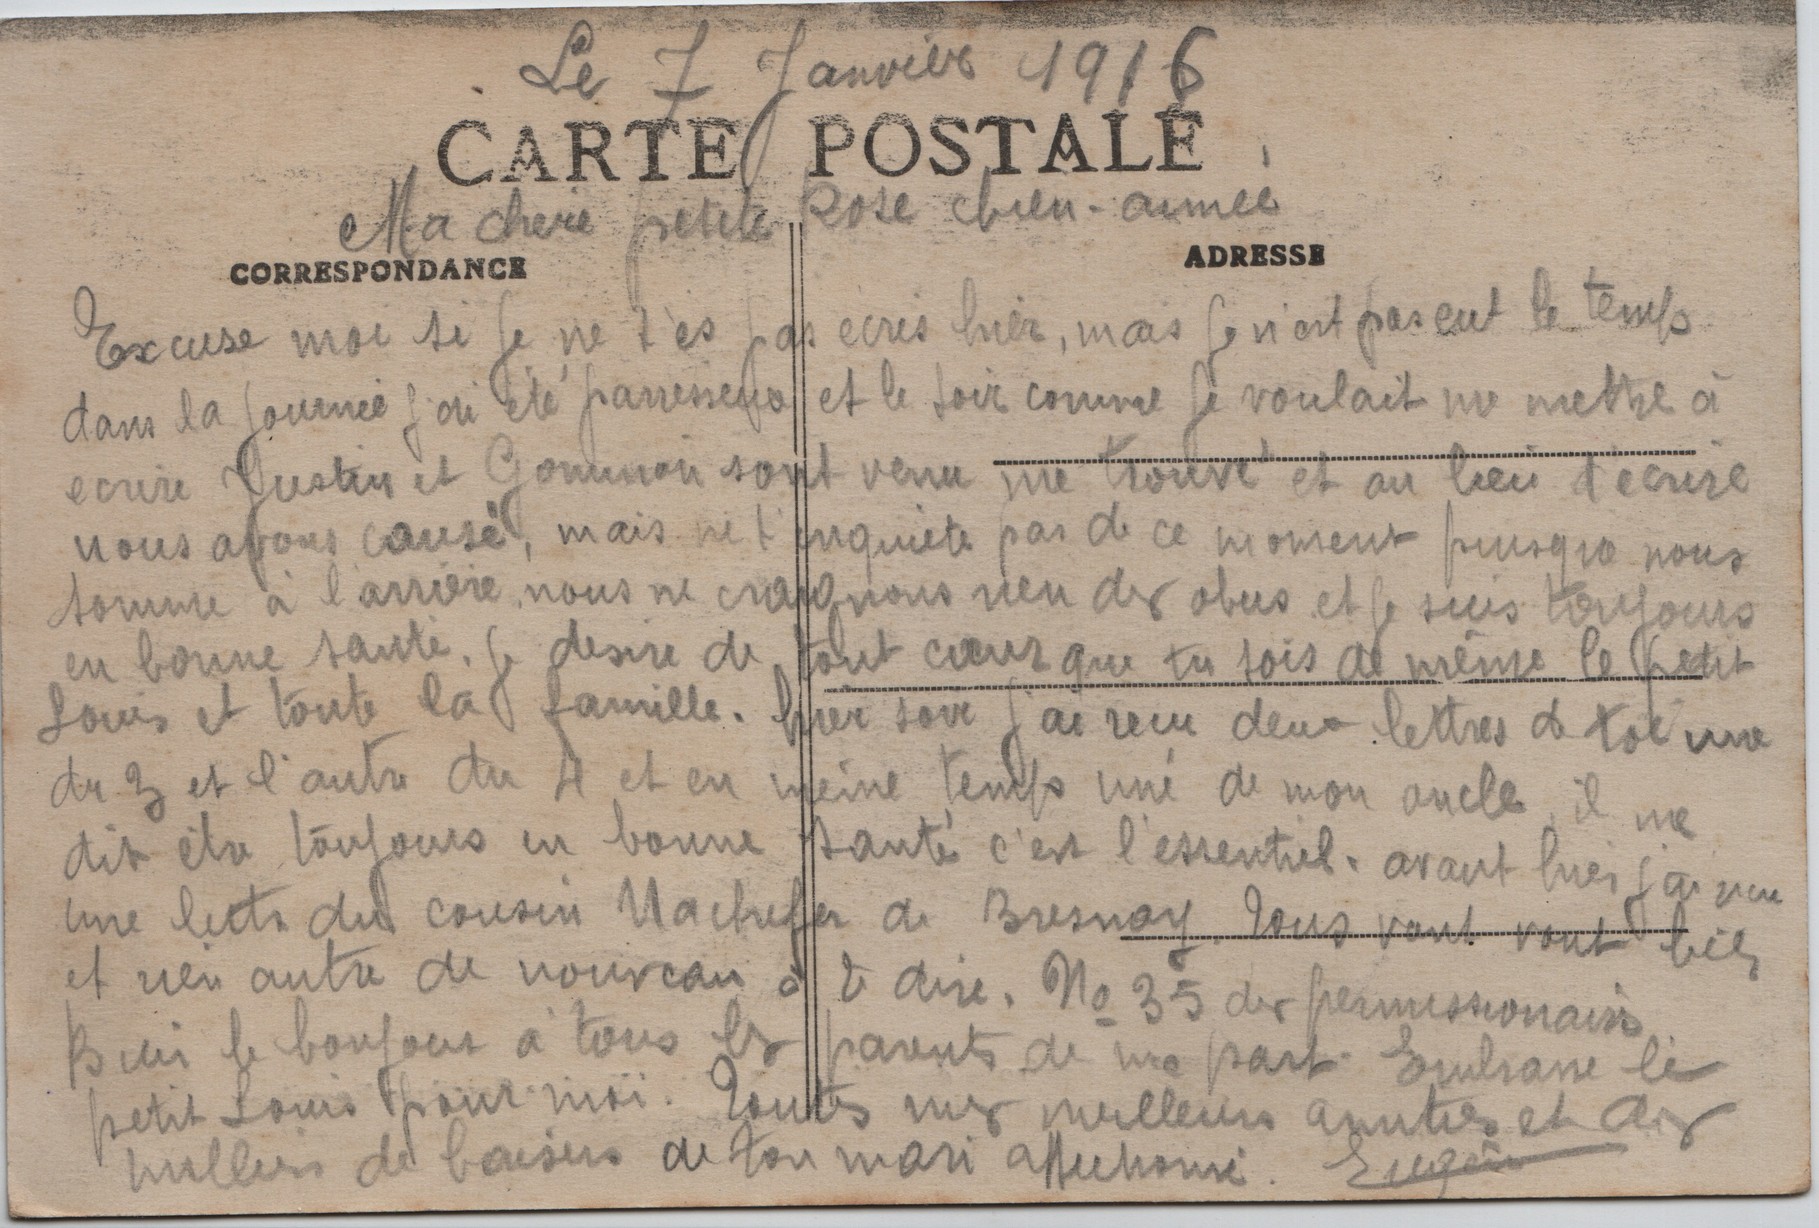 Le 7 Janvier 1916
CARTE POSTALE
Ma cherie petite Rose bien-aimée
CORRESPONDANCE
ADRESSE
Excuse moi si je ne t'es pas ecris hier, mais je n'est pas eut le temps
dans la journée j'ai été paresseux et le soir comme je voulait me mettre à
ecrire Justin et sont venu me trouvé et au lieu d'ecrire
nous avons causé, mais ne t'inquiete pas de ce moment puisque nous
somme à l'arrière, nous ne craignons rien des obus et je suis toujours
en bonne santé. Je desire de tout cœur que tu sois de même le petit
Louis et toute la famille. hier soir j'ai recu deux lettres de toi une
du 3 et l'autre du 4 et en même temps une de mon oncle, il me
dit être toujours en bonne santé c'est l'essentiel. avant hier j'ai recu
une lettre du cousin de Bresnay. Tous vont vont bien
et rien autre de nouveau à te dire. No 35 des permissionaires
Bien le bonjour à tous les parents de ma part. Embrasse le
petit Louis pour moi. Toutes mes meilleurs amitiés et des
milliers de baisers de ton mari affectionné. Eugène